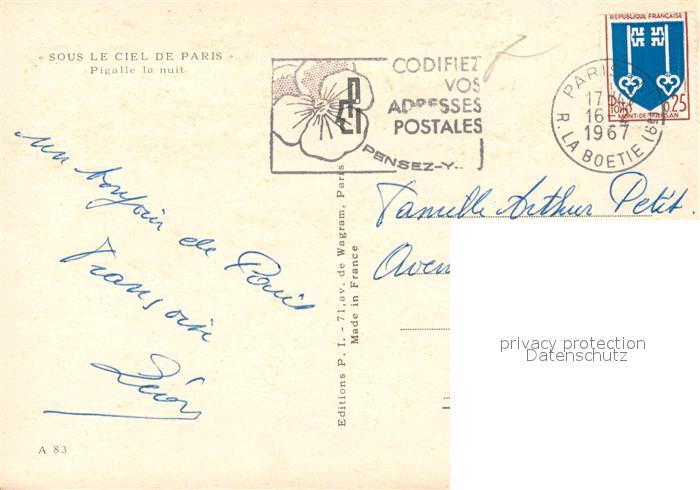 « SOUS LE CIEL DE PARIS »
Pigalle la nuit
un bonjour de Paris
Françoise
Léon
A 83
Editions P. I. - 71, av. de Wagram, Paris
Made in France
CODIFIEZ
VOS
ADRESSES
POSTALES
PENSEZ-Y...
PARIS
17H
16-
1967
R. LA BOETIE (8e)
REPUBLIQUE FRANÇAISE
Postes 0,25
MONT-DE-MARSAN
Famille Arthur Petit
Aven
privacy protection
Datenschutz